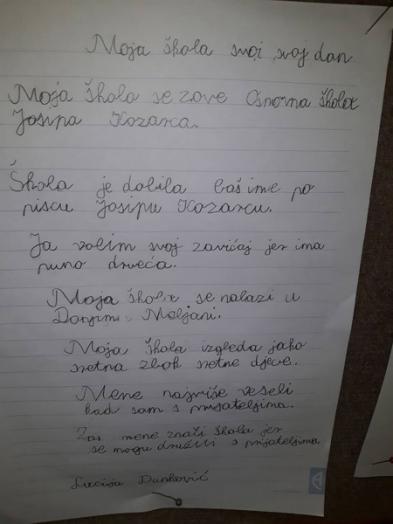 Moja škola svoj svoj dan
Moja škola se zove Osnovna škola
Josipa Kozarca.
Škola je dobila baš ime po
piscu Josipu Kozarcu.
Ja volim svoj zavičaj jer ima
puno drveća.
Moja škola se nalazi u
Donjim Meljani.
Moja škola izgleda jako
sretna zbok sretne djece.
Mene najviše veseli
kad sam s prijateljima.
Zas mene znači škola jer
se mogu družiti s prijateljima
Lucija Danković